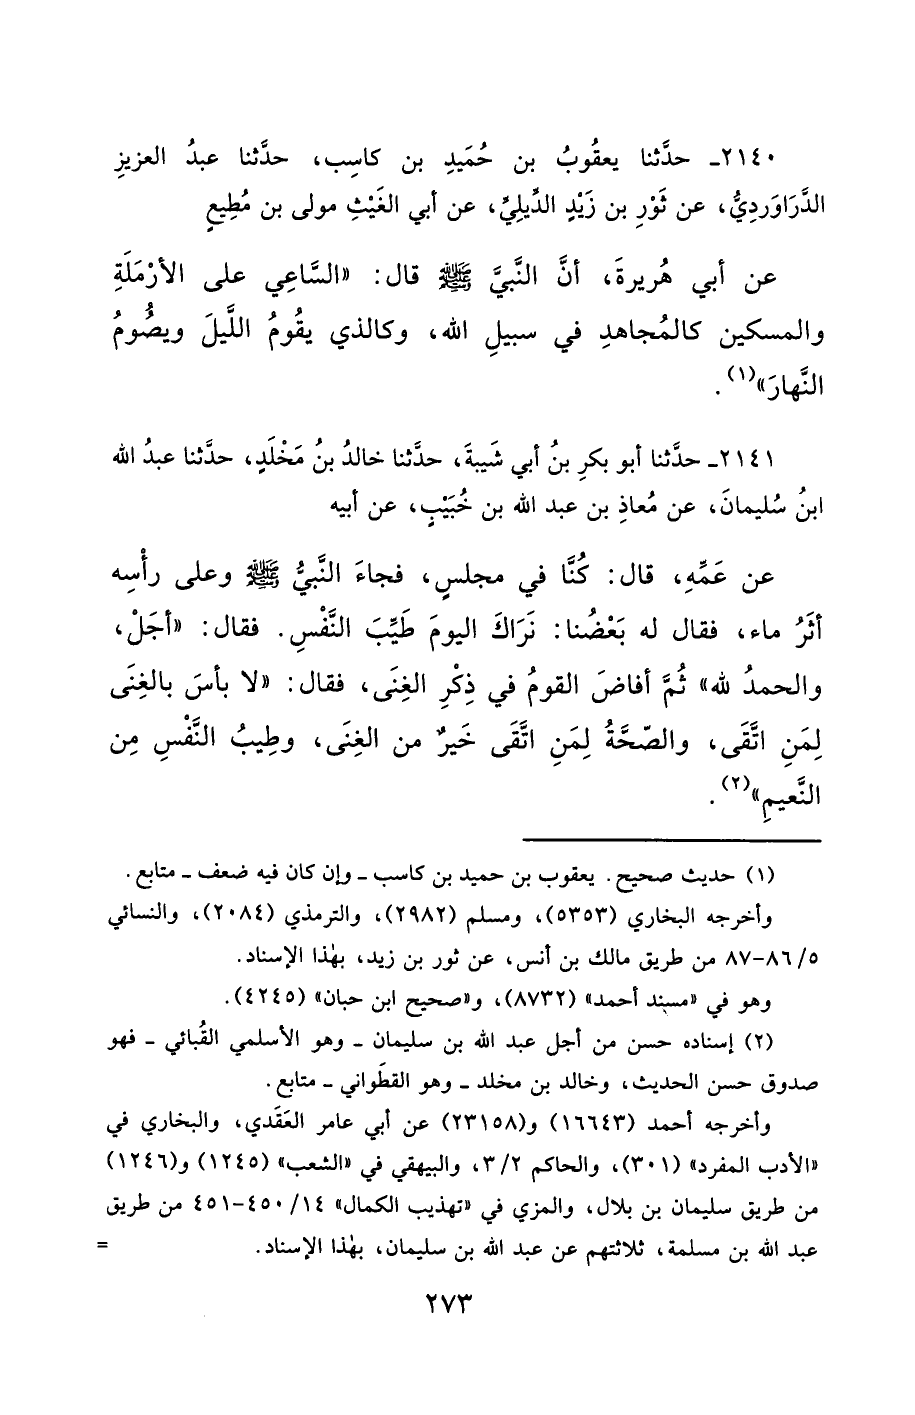 ٢١٤٠ـ حدَّثنا يعقُوبُ بن حُمَيدِ بن كاسِب، حدَّثنا عبدُ العزيزِ
الدَّرَاوَردِيُّ، عن ثَوْرِ بن زَيْدٍ الدِّيلِيِّ، عن أبي الغَيْثِ مولى بن مُطِيعٍ
عن أبي هُريرةَ، أنَّ النَّبيَّ ﷺ قال: «السَّاعِي على الأرْمَلَةِ
والمسكين كالمُجاهدِ في سبيلِ الله، وكالذي يقُومُ اللَّيلَ ويصُومُ
النَّهارَ»(١).
٢١٤١ـ حدَّثنا أبو بكرِ بنُ أبي شَيبةَ، حدَّثنا خالدُ بنُ مَخْلَدٍ، حدَّثنا عبدُ الله
ابنُ سُليمانَ، عن مُعاذِ بن عبد الله بن خُبَيْبٍ، عن أبيه
عن عَمِّهِ، قال: كُنَّا في مجلسٍ، فجاءَ النَّبيُّ ﷺ وعلى رأْسِه
أثَرُ ماء، فقال له بَعْضُنا: نَرَاكَ اليومَ طَيِّبَ النَّفْسِ. فقال: «أجَلْ،
والحمدُ لله» ثُمَّ أفاضَ القومُ في ذِكْرِ الغِنَى، فقال: «لا بأسَ بالغِنَى
لِمَنِ اتَّقَى، والصِّحَّةُ لِمَنِ اتَّقَى خَيرٌ من الغِنَى، وطِيبُ النَّفْسِ مِن
النَّعيمِ»(٢).
(١) حديث صحيح. يعقوب بن حميد بن كاسب ـ وإن كان فيه ضعف ـ متابع.
وأخرجه البخاري (٥٣٥٣)، ومسلم (٢٩٨٢)، والترمذي (٢٠٨٤)، والنسائي
٥/ ٨٦-٨٧ من طريق مالك بن أنس، عن ثور بن زيد، بهٰذا الإسناد.
وهو في «مسند أحمد» (٨٧٣٢)، و«صحيح ابن حبان» (٤٢٤٥).
(٢) إسناده حسن من أجل عبد الله بن سليمان ـ وهو الأسلمي القُبائي ـ فهو
صدوق حسن الحديث، وخالد بن مخلد ـ وهو القطَواني ـ متابع.
وأخرجه أحمد (١٦٦٤٣) و(٢٣١٥٨) عن أبي عامر العَقَدي، والبخاري في
«الأدب المفرد» (٣٠١)، والحاكم ٢/ ٣، والبيهقي في «الشعب» (١٢٤٥) و(١٢٤٦)
من طريق سليمان بن بلال، والمزي في «تهذيب الكمال» ١٤/ ٤٥٠-٤٥١ من طريق
عبد الله بن مسلمة، ثلاثتهم عن عبد الله بن سليمان، بهٰذا الإسناد. =
٢٧٣